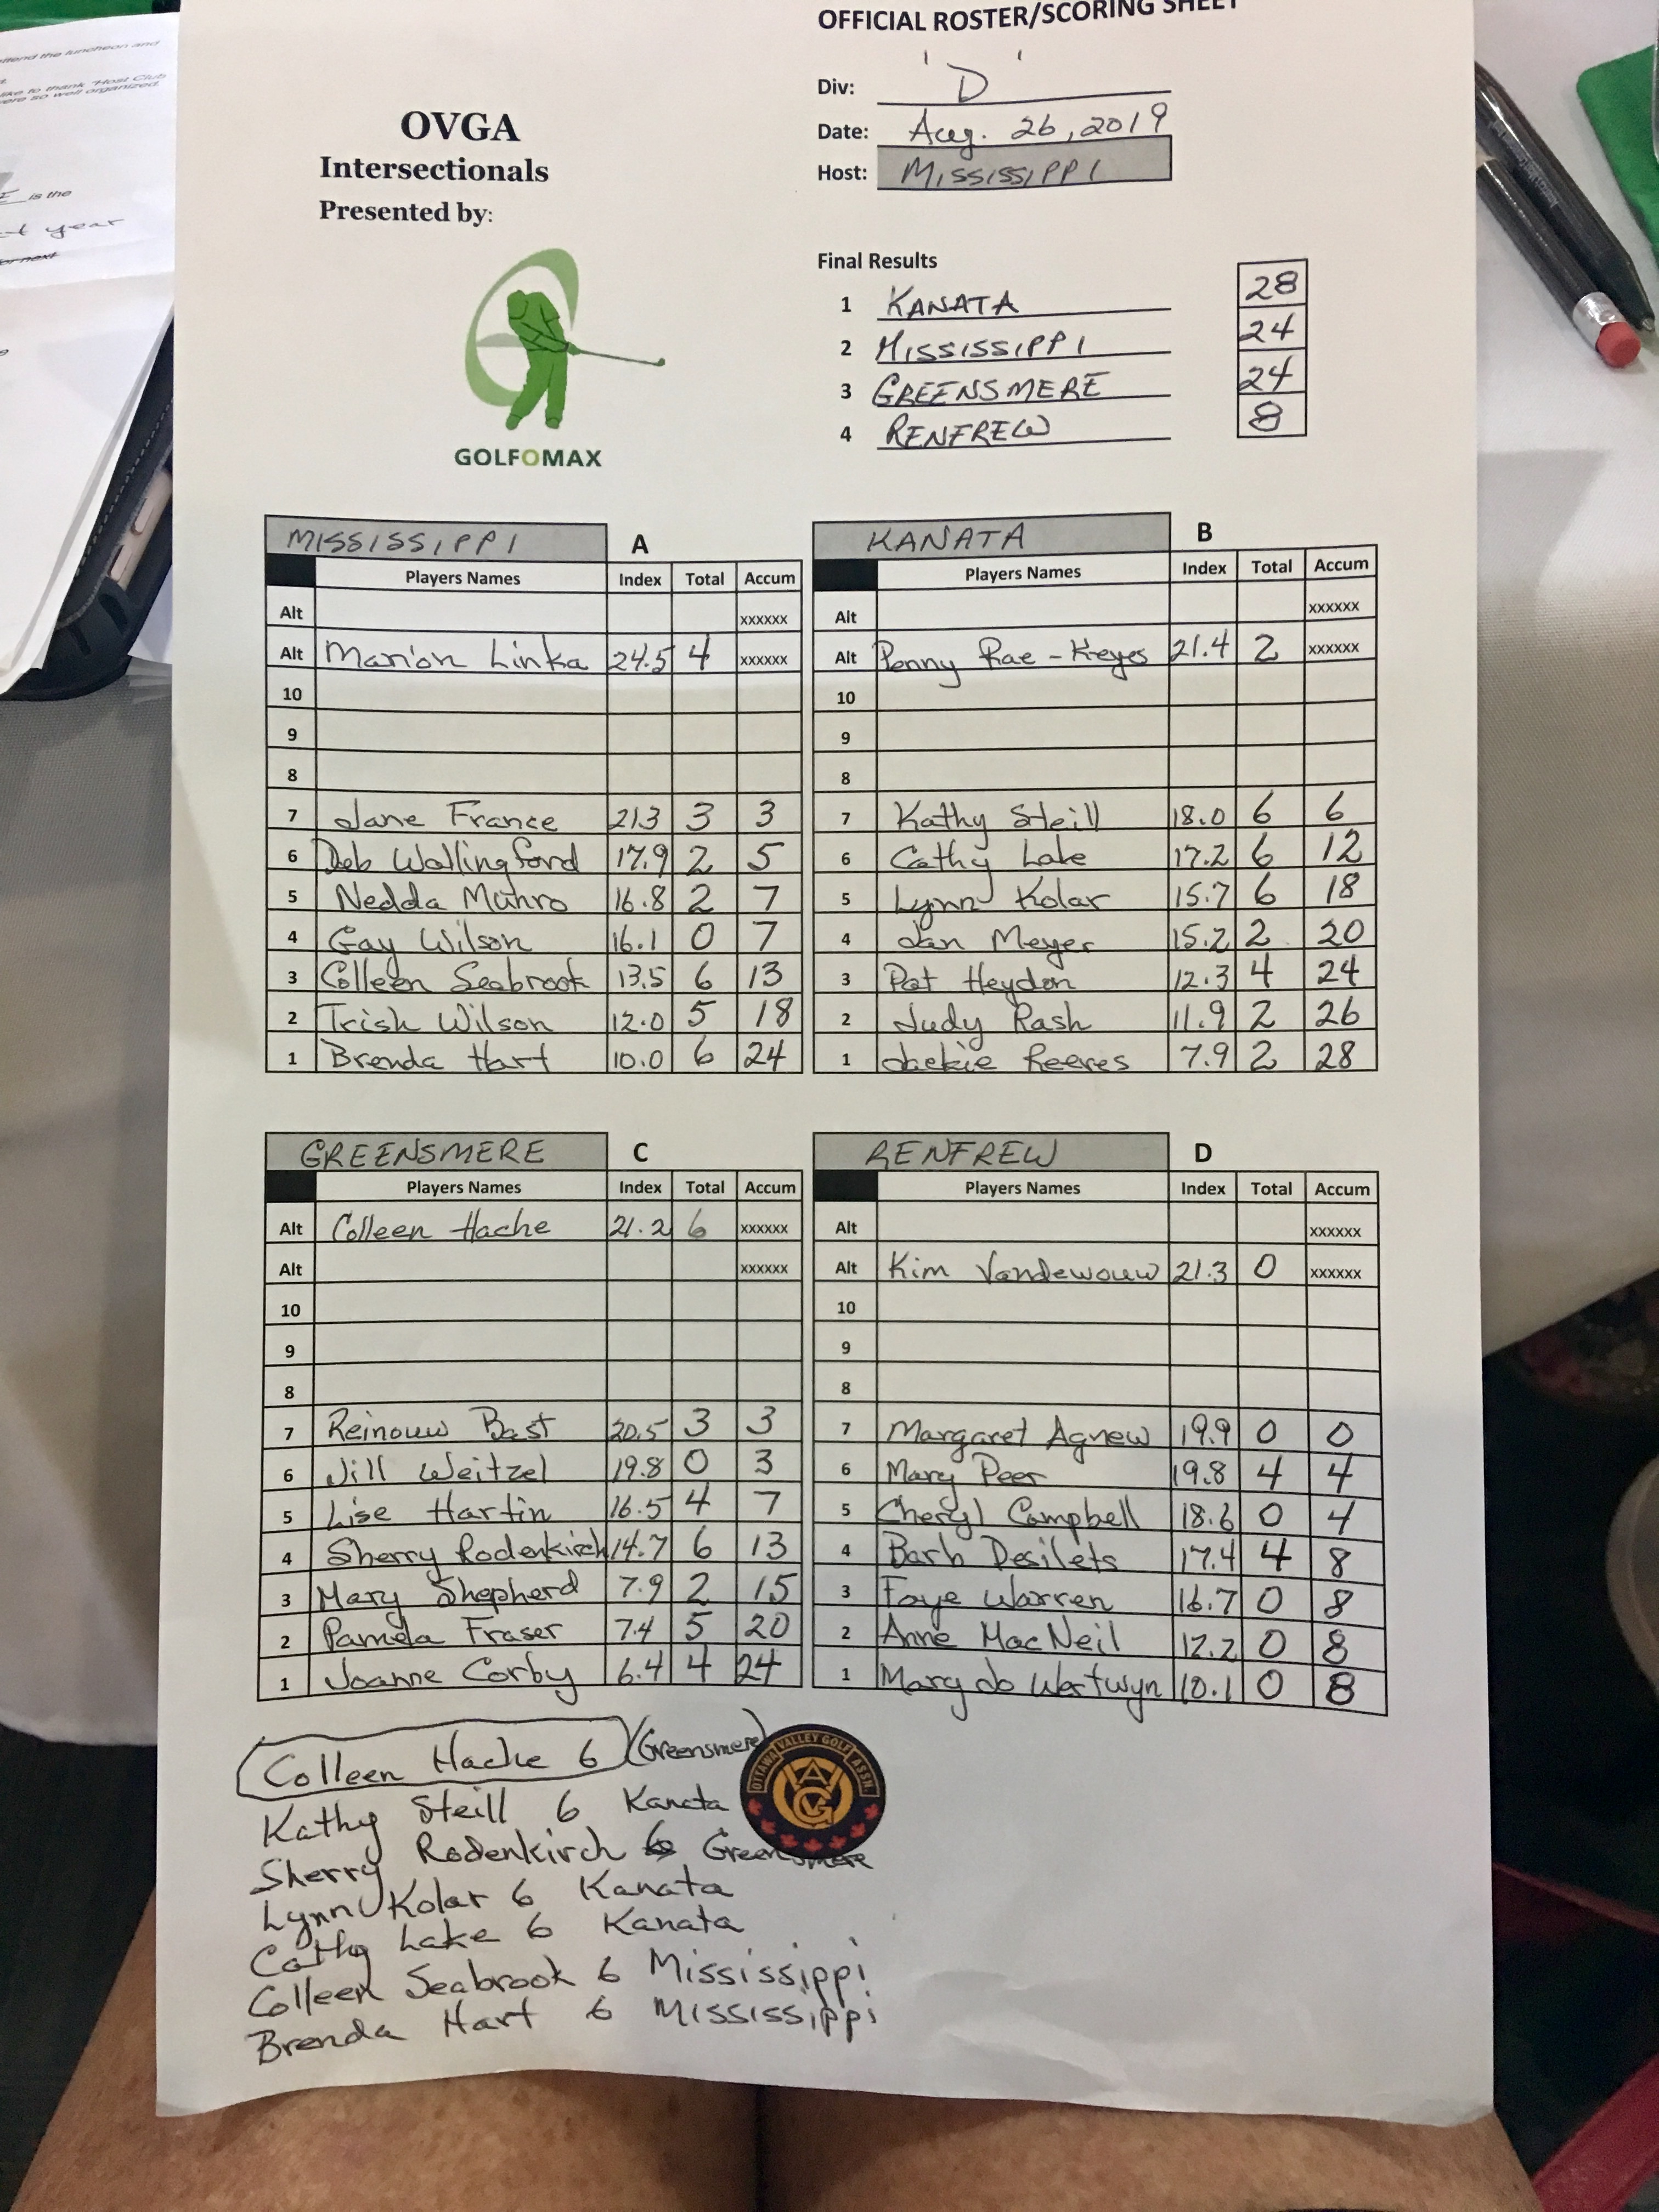 ttend the luncheon and
like to thank "Host Club
ere so well organized.
is the
year
OFFICIAL ROSTER/SCORING SHEET
Div: 'D'
Date: Aug. 26, 2019
Host: MISSISSIPPI
OVGA
Intersectionals
Presented by:
GOLFOMAX
Final Results
1 KANATA 28
2 MISSISSIPPI 24
3 GREENSMERE 24
4 RENFREW 8
MISSISSIPPI A
Players Names Index Total Accum
Alt xxxxxx
Alt Marion Linka 24.5 4 xxxxxx
10
9
8
7 Jane France 21.3 3 3
6 Deb Wallingford 17.9 2 5
5 Nedda Munro 16.8 2 7
4 Gay Wilson 16.1 0 7
3 Colleen Seabrook 13.5 6 13
2 Trish Wilson 12.0 5 18
1 Brenda Hart 10.0 6 24
KANATA B
Players Names Index Total Accum
Alt xxxxxx
Alt Penny Rae-Keyes 21.4 2 xxxxxx
10
9
8
7 Kathy Steill 18.0 6 6
6 Cathy Lake 17.2 6 12
5 Lynn Kolar 15.7 6 18
4 Jan Meyer 15.2 2 20
3 Pat Heydon 12.3 4 24
2 Judy Rash 11.9 2 26
1 Jackie Reeves 7.9 2 28
GREENSMERE C
Players Names Index Total Accum
Alt Colleen Hache 21.2 6 xxxxxx
Alt xxxxxx
10
9
8
7 Reinouw Bast 20.5 3 3
6 Jill Weitzel 19.8 0 3
5 Lise Hartin 16.5 4 7
4 Sherry Rodenkirch 14.7 6 13
3 Mary Shepherd 7.9 2 15
2 Pamela Fraser 7.4 5 20
1 Joanne Corby 6.4 4 24
RENFREW D
Players Names Index Total Accum
Alt xxxxxx
Alt Kim Vandewouw 21.3 0 xxxxxx
10
9
8
7 Margaret Agnew 19.9 0 0
6 Mary Peer 19.8 4 4
5 Cheryl Campbell 18.6 0 4
4 Barb Desilets 17.4 4 8
3 Faye Warren 16.7 0 8
2 Anne MacNeil 12.2 0 8
1 Mary Jo Wertwyn 10.1 0 8
Colleen Hache 6 (Greensmere)
Kathy Steill 6 Kanata
Sherry Rodenkirch 6 Greensmere
Lynn Kolar 6 Kanata
Cathy Lake 6 Kanata
Colleen Seabrook 6 Mississippi
Brenda Hart 6 Mississippi
OTTAWA VALLEY GOLF ASSN.